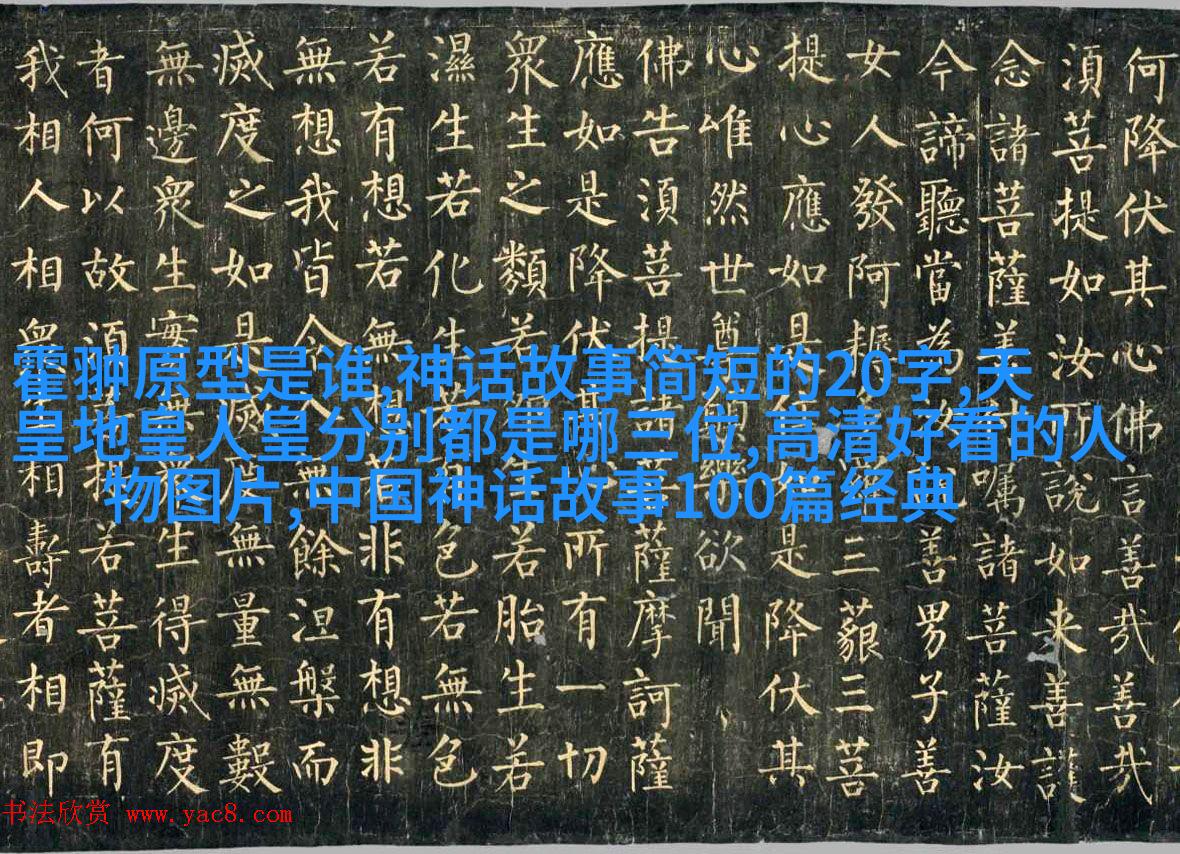 何降伏其心佛言善哉善哉
須菩提如汝所說如来善護
念諸菩薩善付嘱諸菩薩汝
今諦聽當為汝說善男子善
女人發阿耨多羅三藐三菩
提心應如是住如是降伏其
心唯然世尊願樂欲聞
佛告須菩提諸菩薩摩訶薩
應如是降伏其心所有一切
衆生之類若卵生若胎生若
濕生若化生若有色若無色
若有想若無想若非有想非
無想我皆令入無餘涅槃而
滅度之如是滅度無量無數
無邊衆生實無衆生得滅度
者何以故須菩提若菩薩有
我相人相衆生相壽者相即
霍翀原型是谁,神话故事简短的20字,天
皇地皇人皇分别都是哪三位,高清好看的人
物图片,中国神话故事100篇经典
书法欣赏 www.yac8.com